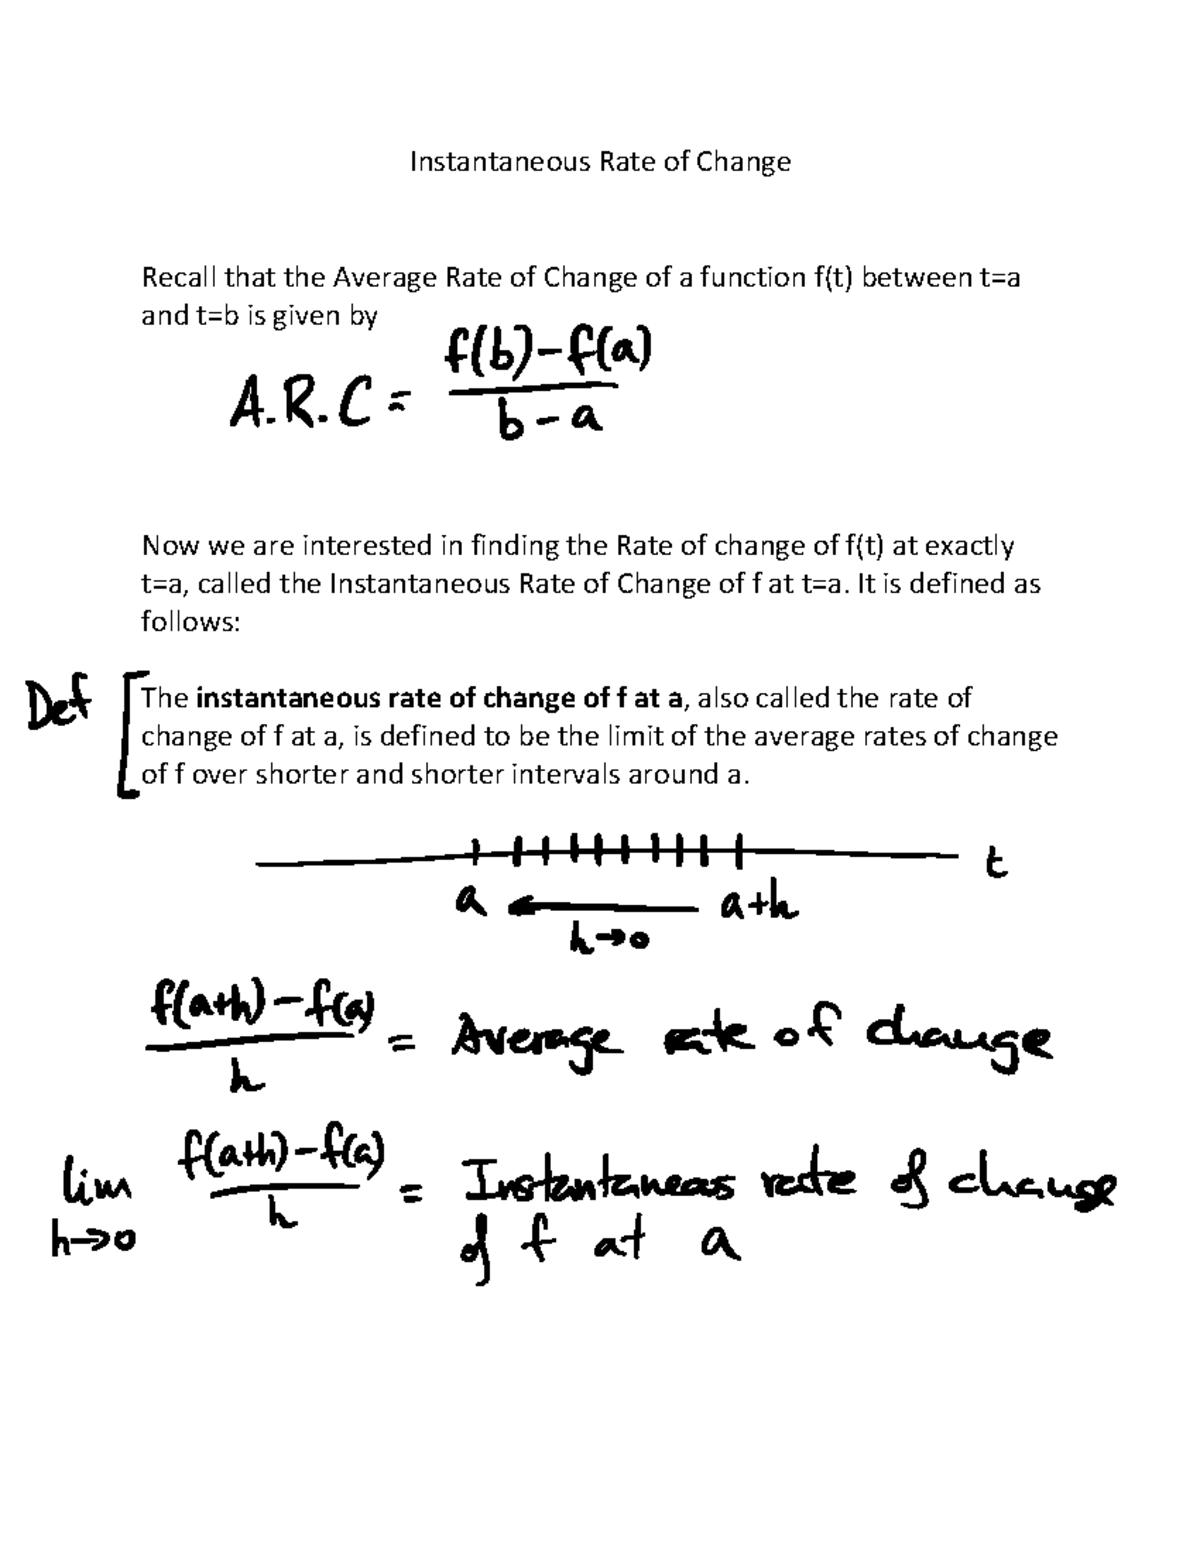 Instantaneous Rate of Change
Recall that the Average Rate of Change of a function f(t) between t=a
and t=b is given by
A.R.C = \frac{f(b)-f(a)}{b-a}
Now we are interested in finding the Rate of change of f(t) at exactly
t=a, called the Instantaneous Rate of Change of f at t=a. It is defined as
follows:
Def [The instantaneous rate of change of f at a, also called the rate of
change of f at a, is defined to be the limit of the average rates of change
of f over shorter and shorter intervals around a.
t
a ← a+h
h→0
\frac{f(a+h)-f(a)}{h} = Average rate of change
\lim_{h→0} \frac{f(a+h)-f(a)}{h} = Instantaneas rate of change
of f at a